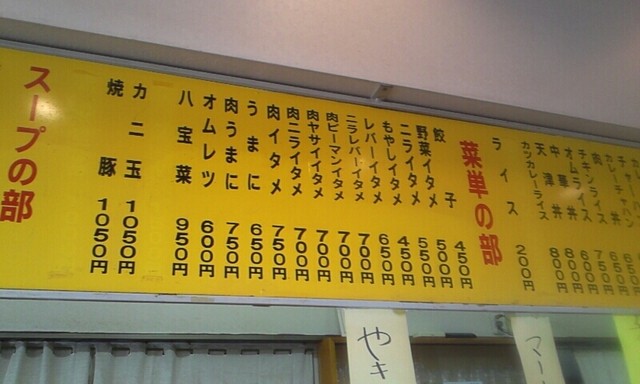 チキンライス
オムライス
中華丼 600円
天津丼 800円
カツカレーライス 800円
ライス 200円
菜単の部
餃子 450円
野菜イタメ 500円
ニライタメ 550円
もやしイタメ 450円
レバーイタメ 650円
ニラレバーイタメ 700円
肉ピーマンイタメ 700円
肉ヤサイイタメ 700円
肉ニライタメ 700円
肉イタメ 750円
うまに 650円
肉うまに 750円
オムレツ 600円
八宝菜 950円
カニ玉 1050円
焼豚 1050円
スープの部
マー
やき